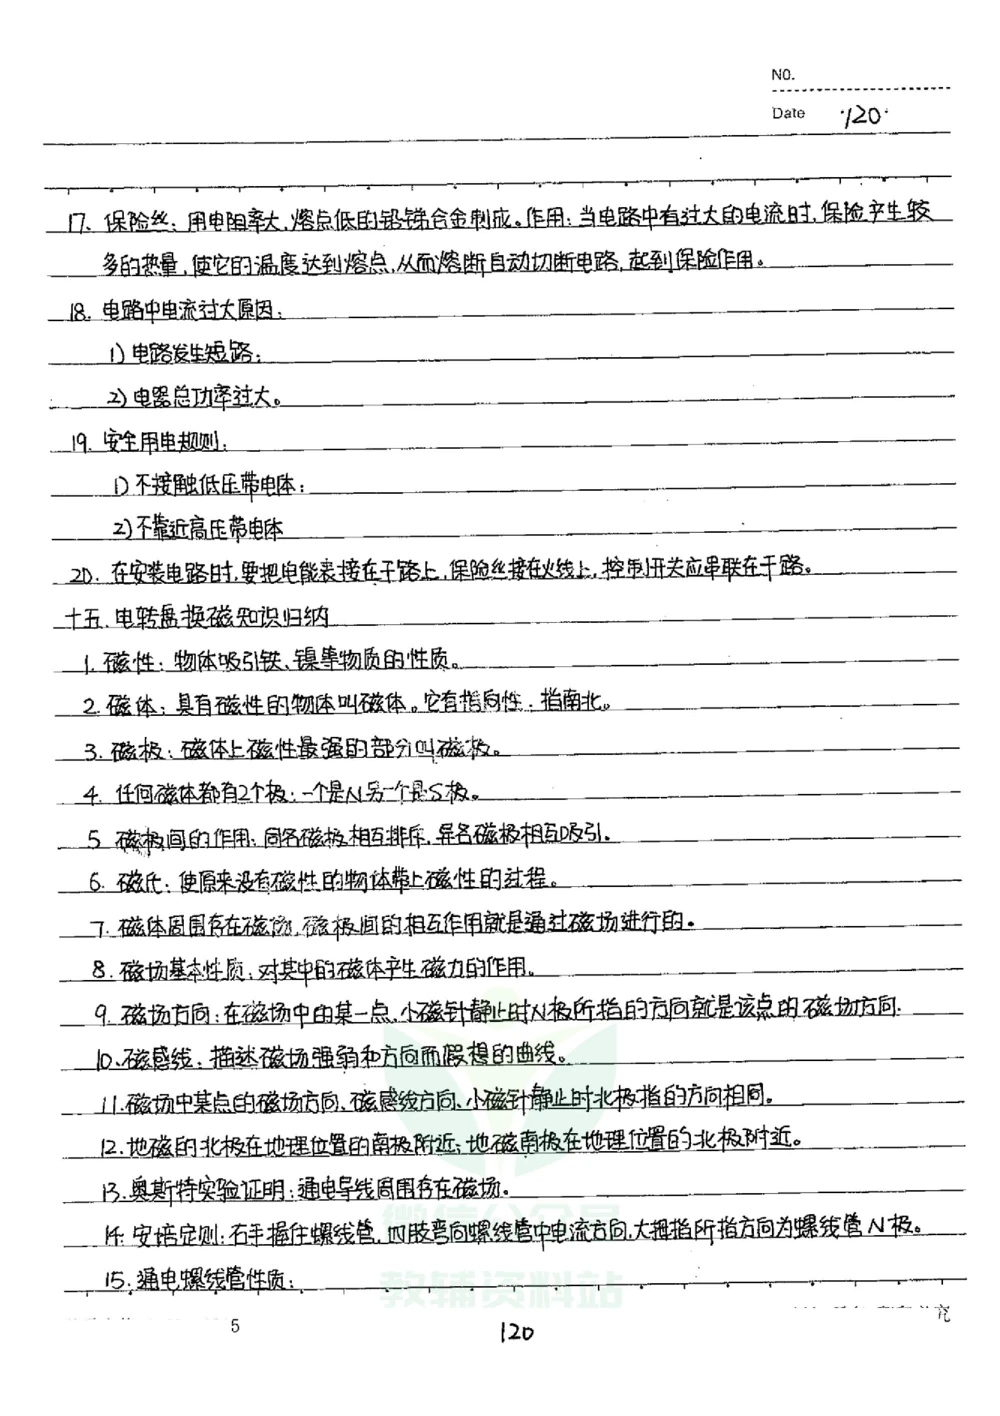 NO.
Date 120
17. 保险丝:用电阻率大,熔点低的铅锑合金制成。作用:当电路中有过大的电流时,保险产生较
多的热量,使它的温度达到熔点,从而熔断自动切断电路,起到保险作用。
18. 电路中电流过大原因:
1)电路发生短路;
2)电器总功率过大。
19. 安全用电规则:
1)不接触低压带电体;
2)不靠近高压带电体
20. 在安装电路时,要把电能表接在干路上,保险丝接在火线上,控制开关应串联在干路。
十五.电转盘换磁知识归纳
1. 磁性:物体吸引铁、镍等物质的性质。
2. 磁体:具有磁性的物体叫磁体。它有指向性:指南北。
3. 磁极:磁体上磁性最强的部分叫磁极。
4. 任何磁体都有2个极:一个是N另一个是S极。
5 磁极间的作用:同名磁极相互排斥,异名磁极相互吸引。
6. 磁氏:使原来没有磁性的物体带上磁性的过程。
7. 磁体周围存在磁场,磁极间的相互作用就是通过磁场进行的。
8. 磁场基本性质:对其中的磁体产生磁力的作用。
9. 磁场方向:在磁场中的某一点,小磁针静止时N极所指的方向就是该点的磁场方向.
10.磁感线:描述磁场强弱和方向而假想的曲线。
11.磁场中某点的磁场方向、磁感线方向、小磁针静止时北极指的方向相同。
12.地磁的北极在地理位置的南极附近;地磁南极在地理位置的北极附近。
13.奥斯特实验证明:通电导线周围存在磁场。
14. 安培定则:右手握住螺线管,四肢弯向螺线管中电流方向,大拇指所指方向为螺线管N极。
15.通电螺线管性质:
微信公众号
教辅资料站
5
120